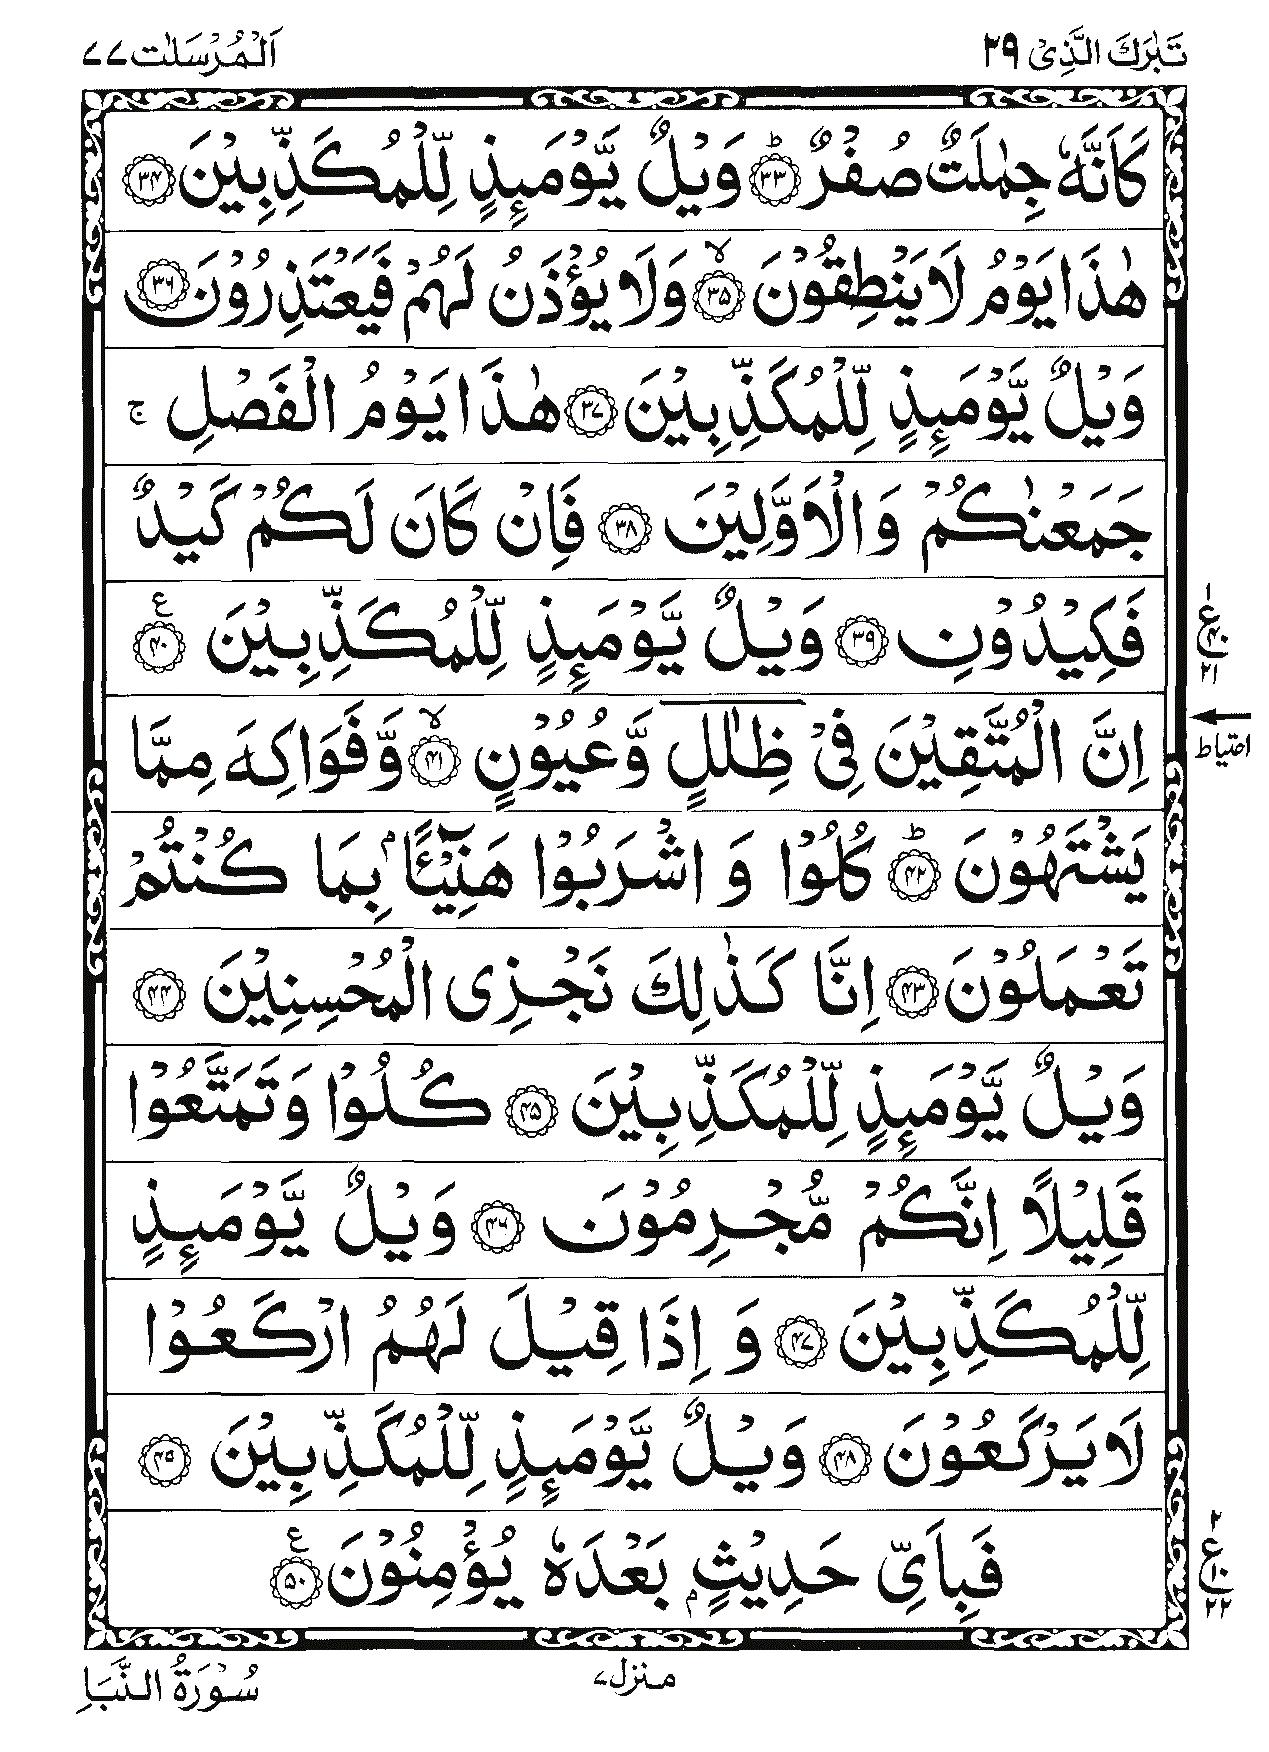 تَبٰرَكَ الَّذِىْ ٢٩
اَلْمُرْسَلٰت ٧٧
كَاَنَّهٗ جِمٰلَتٌ صُفْرٌ ؕ‏ ﴿۳۳﴾ وَيْلٌ يَّوْمَئِذٍ لِّلْمُكَذِّبِيْنَ ﴿۳۴﴾
هٰذَا يَوْمُ لَا يَنْطِقُوْنَ ۙ‏ ﴿۳۵﴾ وَلَا يُؤْذَنُ لَهُمْ فَيَعْتَذِرُوْنَ ﴿۳۶﴾
وَيْلٌ يَّوْمَئِذٍ لِّلْمُكَذِّبِيْنَ ﴿۳۷﴾ هٰذَا يَوْمُ الْفَصْلِ ۚ
جَمَعْنٰكُمْ وَالْاَوَّلِيْنَ ﴿۳۸﴾ فَاِنْ كَانَ لَكُمْ كَيْدٌ
فَكِيْدُوْنِ ﴿۳۹﴾ وَيْلٌ يَّوْمَئِذٍ لِّلْمُكَذِّبِيْنَ ﴿۴۰﴾ ع
١ ع ۴۰ ٢١
اِنَّ الْمُتَّقِيْنَ فِىْ ظِلٰلٍ وَّعُيُوْنٍ ۙ‏ ﴿۴۱﴾ وَّفَوَاكِهَ مِمَّا
احتياط
يَشْتَهُوْنَ ؕ‏ ﴿۴۲﴾ كُلُوْا وَ اشْرَبُوْا هَنِيْٓـئًا ۢ بِمَا كُنْتُمْ
تَعْمَلُوْنَ ﴿۴۳﴾ اِنَّا كَذٰلِكَ نَجْزِى الْمُحْسِنِيْنَ ﴿۴۴﴾
وَيْلٌ يَّوْمَئِذٍ لِّلْمُكَذِّبِيْنَ ﴿۴۵﴾ كُلُوْا وَتَمَتَّعُوْا
قَلِيْلًا اِنَّكُمْ مُّجْرِمُوْنَ ﴿۴۶﴾ وَيْلٌ يَّوْمَئِذٍ
لِّلْمُكَذِّبِيْنَ ﴿۴۷﴾ وَ اِذَا قِيْلَ لَهُمُ ارْكَعُوْا
لَا يَرْكَعُوْنَ ﴿۴۸﴾ وَيْلٌ يَّوْمَئِذٍ لِّلْمُكَذِّبِيْنَ ﴿۴۹﴾
فَبِاَىِّ حَدِيْثٍۭ بَعْدَهٗ يُؤْمِنُوْنَ ﴿۵۰﴾ ع
٢ ع ١٠ ٢٢
منزل ٧
سُوْرَةُ النَّبَاِ